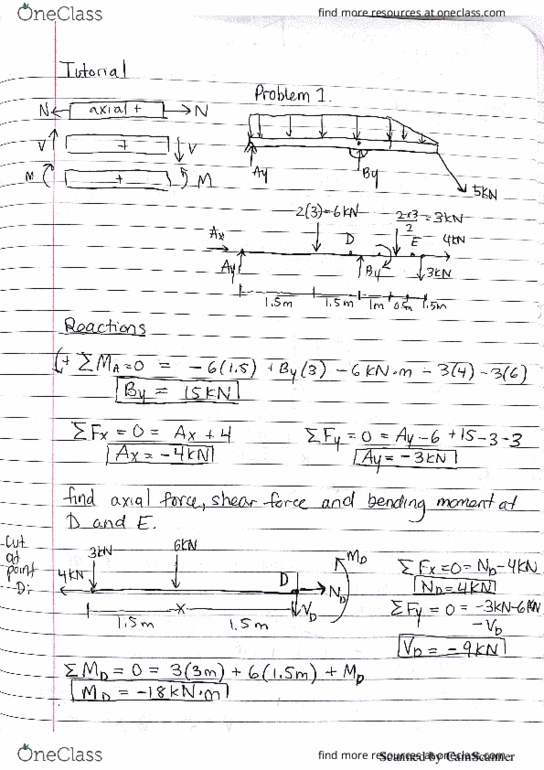 OneClass
find more resources at oneclass.com
Tutorial
N axial + N
V + V
M + M
Problem 1.
Ay
By
5KN
2(3)=6KN
2×3/2 = 3KN
Ax
D
E
4KN
Ay
By
3KN
1.5m 1.5m 1m 0.5m 1.5m
Reactions
(+ ΣMA=0 = -6(1.5) + By(3) - 6KN·m - 3(4) - 3(6)
By = 15KN
ΣFx = 0 = Ax + 4
Ax = -4KN
ΣFy = 0 = Ay - 6 + 15 - 3 - 3
Ay = -3KN
find axial force, shear force and bending moment at
D and E.
-Cut
at
point
D:
4KN
3KN
6KN
D
MD
ND
VD
1.5m 1.5m
ΣFx = 0 = ND - 4KN
ND = 4KN
ΣFy = 0 = -3KN - 6KN
- VD
VD = -9KN
ΣMD = 0 = 3(3m) + 6(1.5m) + MD
MD = -18KN·m
OneClass
find more resources at oneclass.com
Scanned by CamScanner